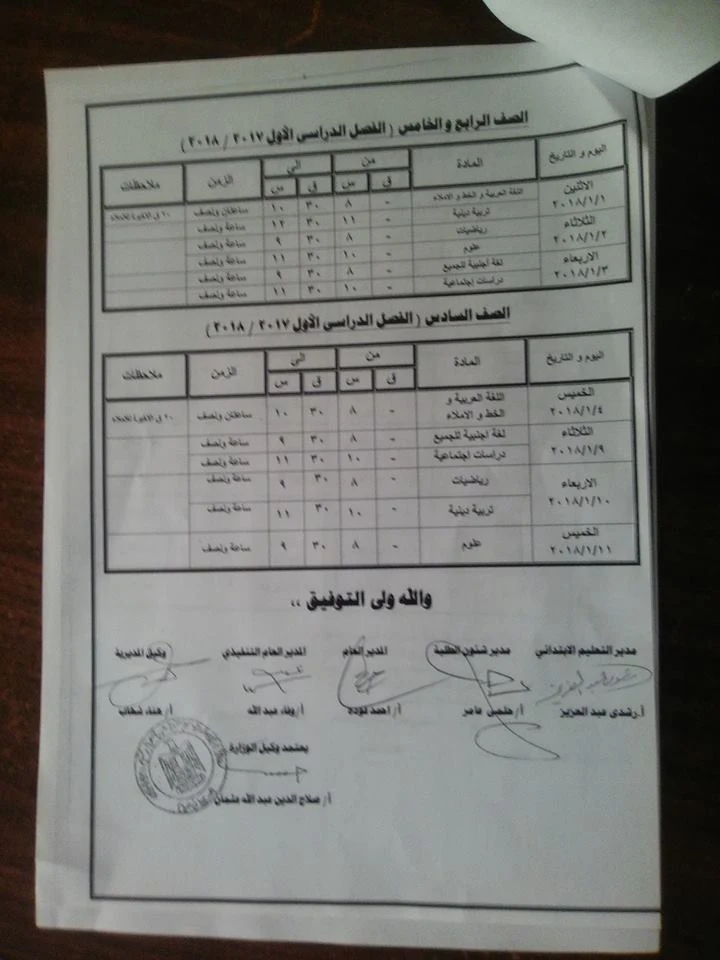 الصف الرابع و الخامس ( الفصل الدراسى الأول ٢٠١٧ / ٢٠١٨ )
اليوم و التاريخ المادة من الى الزمن ملاحظات
ق س ق س
الاثنين ٢٠١٨/١/١ اللغة العربية و الخط و الاملاء - ٨ ٣٠ ١٠ ساعتان ونصف
تربية دينية - ١١ ٣٠ ١٢ ساعة ونصف
الثلاثاء ٢٠١٨/١/٢ رياضيات - ٨ ٣٠ ٩ ساعة ونصف
علوم - ١٠ ٣٠ ١١ ساعة ونصف
الاربعاء ٢٠١٨/١/٣ لغة أجنبية للجميع - ٨ ٣٠ ٩ ساعة ونصف
دراسات إجتماعية - ١٠ ٣٠ ١١ ساعة ونصف
الصف السادس ( الفصل الدراسى الأول ٢٠١٧ / ٢٠١٨ )
اليوم و التاريخ المادة من الى الزمن ملاحظات
ق س ق س
الخميس ٢٠١٨/١/٤ اللغة العربية و الخط و الاملاء - ٨ ٣٠ ١٠ ساعتان ونصف
الثلاثاء ٢٠١٨/١/٩ لغة اجنبية للجميع - ٨ ٣٠ ٩ ساعة ونصف
دراسات اجتماعية - ١٠ ٣٠ ١١ ساعة ونصف
الاربعاء ٢٠١٨/١/١٠ رياضيات - ٨ ٣٠ ٩ ساعة ونصف
تربية دينية - ١٠ ٣٠ ١١ ساعة ونصف
الخميس ٢٠١٨/١/١١ علوم - ٨ ٣٠ ٩ ساعة ونصف
والله ولى التوفيق ،،
مدير التعليم الابتدائي مدير شئون الطلبة المدير العام المدير العام التنفيذي وكيل المديرية
أ.رشدى عبد العزيز أ/ حلمى عامر أ/ احمد أ/ وفاء عبد الله أ/ هناء
يعتمد وكيل الوزارة
أ/ صلاح الدين عبد الله